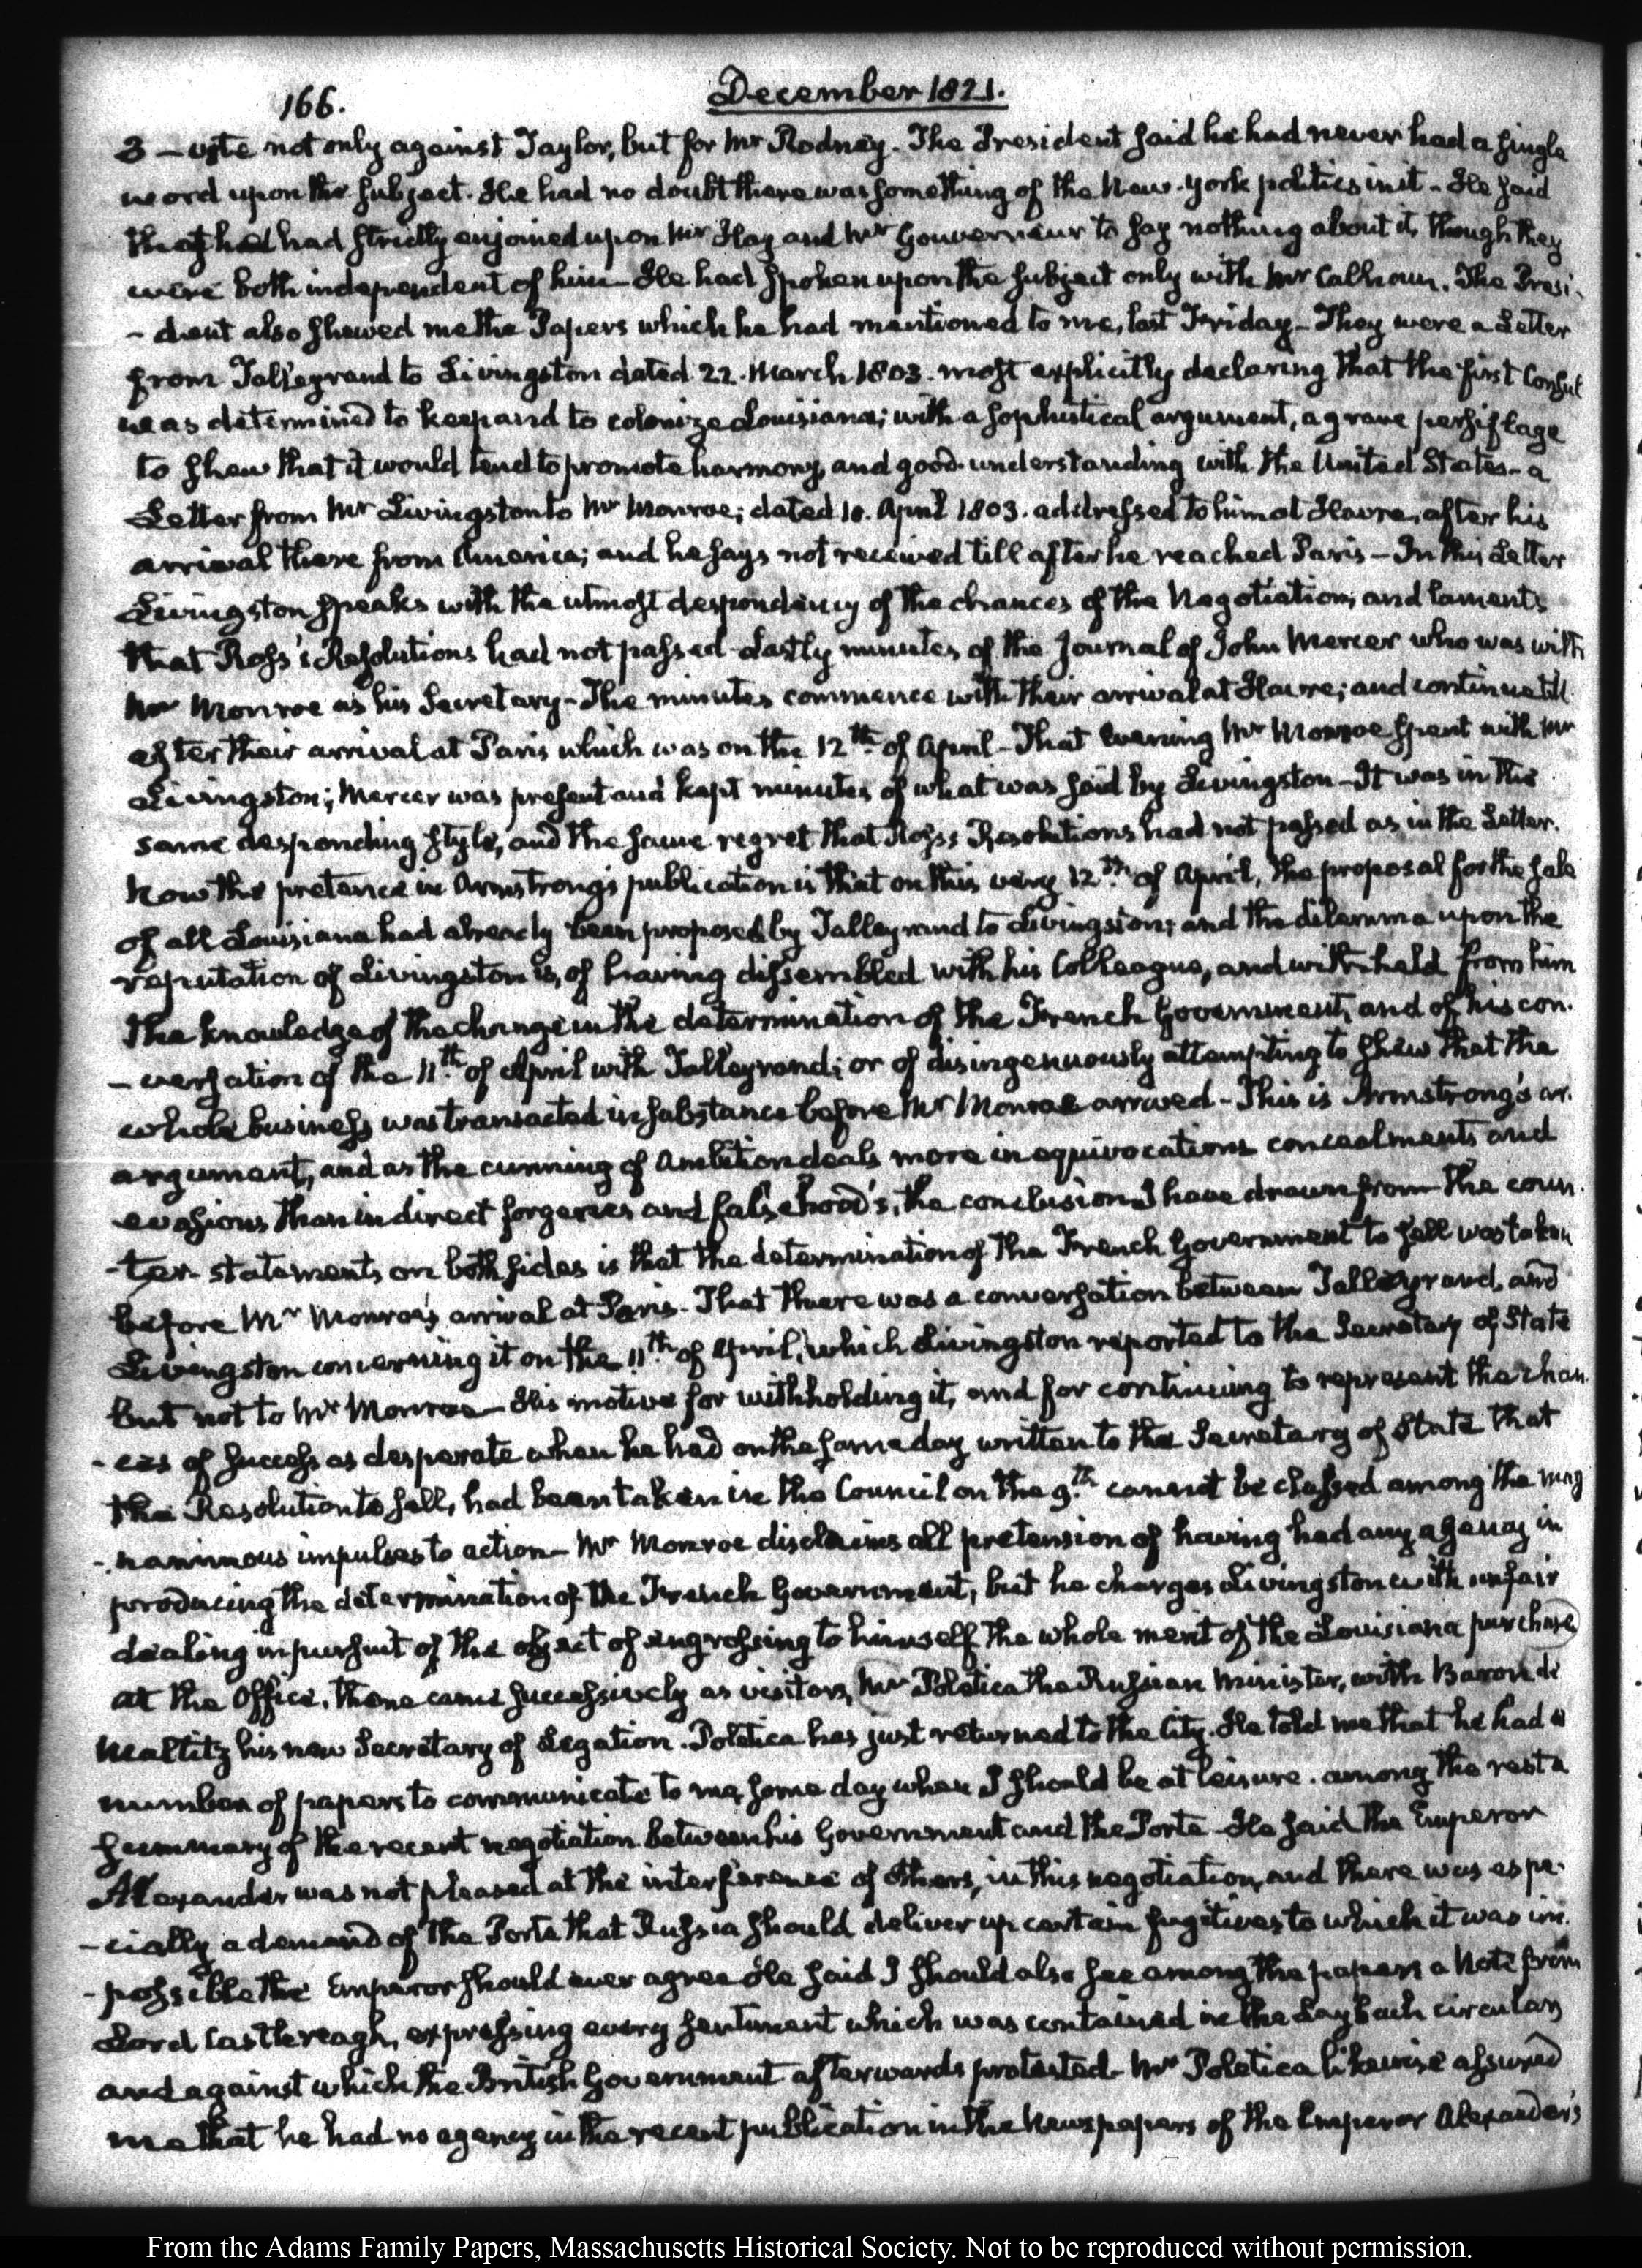 166.
December 1821.
3 — vote not only against Taylor, but for Mr Rodney. The President said he had never had a single
word upon the subject. He had no doubt there was something of the New-York politics in it — He said
that he had strictly enjoined upon Mr Hay and Mr Gouverneur to say nothing about it, though they
were both independent of him — He had spoken upon the subject only with Mr Calhoun. The Presi-
-dent also shewed me the Papers which he had mentioned to me, last Friday — They were a Letter
from Talleyrand to Livingston dated 22. March 1803. most explicitly declaring that the first Consul
was determined to keep and to colonize Louisiana; with a sophistical argument, a grave persiflage
to shew that it would tend to promote harmony and good-understanding with the United States — a
Letter from Mr Livingston to Mr Monroe; dated 10. April 1803. addressed to him at Havre, after his
arrival there from America; and he says not received till after he reached Paris — In this Letter
Livingston speaks with the utmost despondency of the chances of the Negotiation, and laments
that Ross's Resolutions had not passed — Lastly minutes of the Journal of John Mercer who was with
Mr Monroe as his Secretary — The minutes commence with their arrival at Havre; and continue till
after their arrival at Paris which was on the 12th of April — That Evening Mr Monroe spent with Mr
Livingston; Mercer was present and kept minutes of what was said by Livingston — It was in the
same desponding style, and the same regret that Ross's Resolutions had not passed as in the Letter.
Now the pretence in Armstrong's publication is that on this very 12th of April, the proposal for the sale
of all Louisiana had already been proposed by Talleyrand to Livingston; and the dilemma upon the
reputation of Livingston is, of having dissembled with his Colleague, and withheld from him
the knowledge of the change in the determination of the French Government, and of his con-
-versation of the 11th of April with Talleyrand; or of disingenuously attempting to shew that the
whole business was transacted in substance before Mr Monroe arrived — This is Armstrong's ar-
argument, and as the cunning of Ambition deals more in equivocations concealments and
evasions than in direct forgeries and falsehood's, the conclusion I have drawn from the coun-
-ter-statements on both sides is that the determination of the French Government to sell was taken
before Mr Monroe's arrival at Paris. That there was a conversation between Talleyrand, and
Livingston concerning it on the 11th of April, which Livingston reported to the Secretary of State
but not to Mr Monroe — His motive for withholding it, and for continuing to represent the chan-
-ces of success as desperate when he had on the same day written to the Secretary of State that
the Resolution to sell, had been taken in the Council on the 9th cannot be classed among the mag
-nanimous impulses to action — Mr Monroe disclaims all pretension of having had any agency in
producing the determination of the French Government, but he charges Livingston with unfair
dealing in pursuit of the object of engrossing to himself the whole merit of the Louisiana purchase
at the Office, there came successively as visitors, Mr Poletica the Russian Minister, with Baron de
Maltitz his new Secretary of Legation. Poletica has just returned to the City. He told me that he had a
number of papers to communicate to me, some day when I should be at leisure. among the rest a
summary of the recent negotiation between his Government and the Porte — He said the Emperor
Alexander was not pleased at the interference of others, in this negotiation, and there was espe-
-cially a demand of the Porte that Russia should deliver up certain fugitives to which it was im-
-possible the Emperor should ever agree — He said I should also see among the papers a Note from
Lord Castlereagh, expressing every sentiment which was contained in the Laybach circular,
and against which the British Government afterwards protested — Mr Poletica likewise assured
me that he had no agency in the recent publication in the Newspapers of the Emperor Alexander's
From the Adams Family Papers, Massachusetts Historical Society. Not to be reproduced without permission.